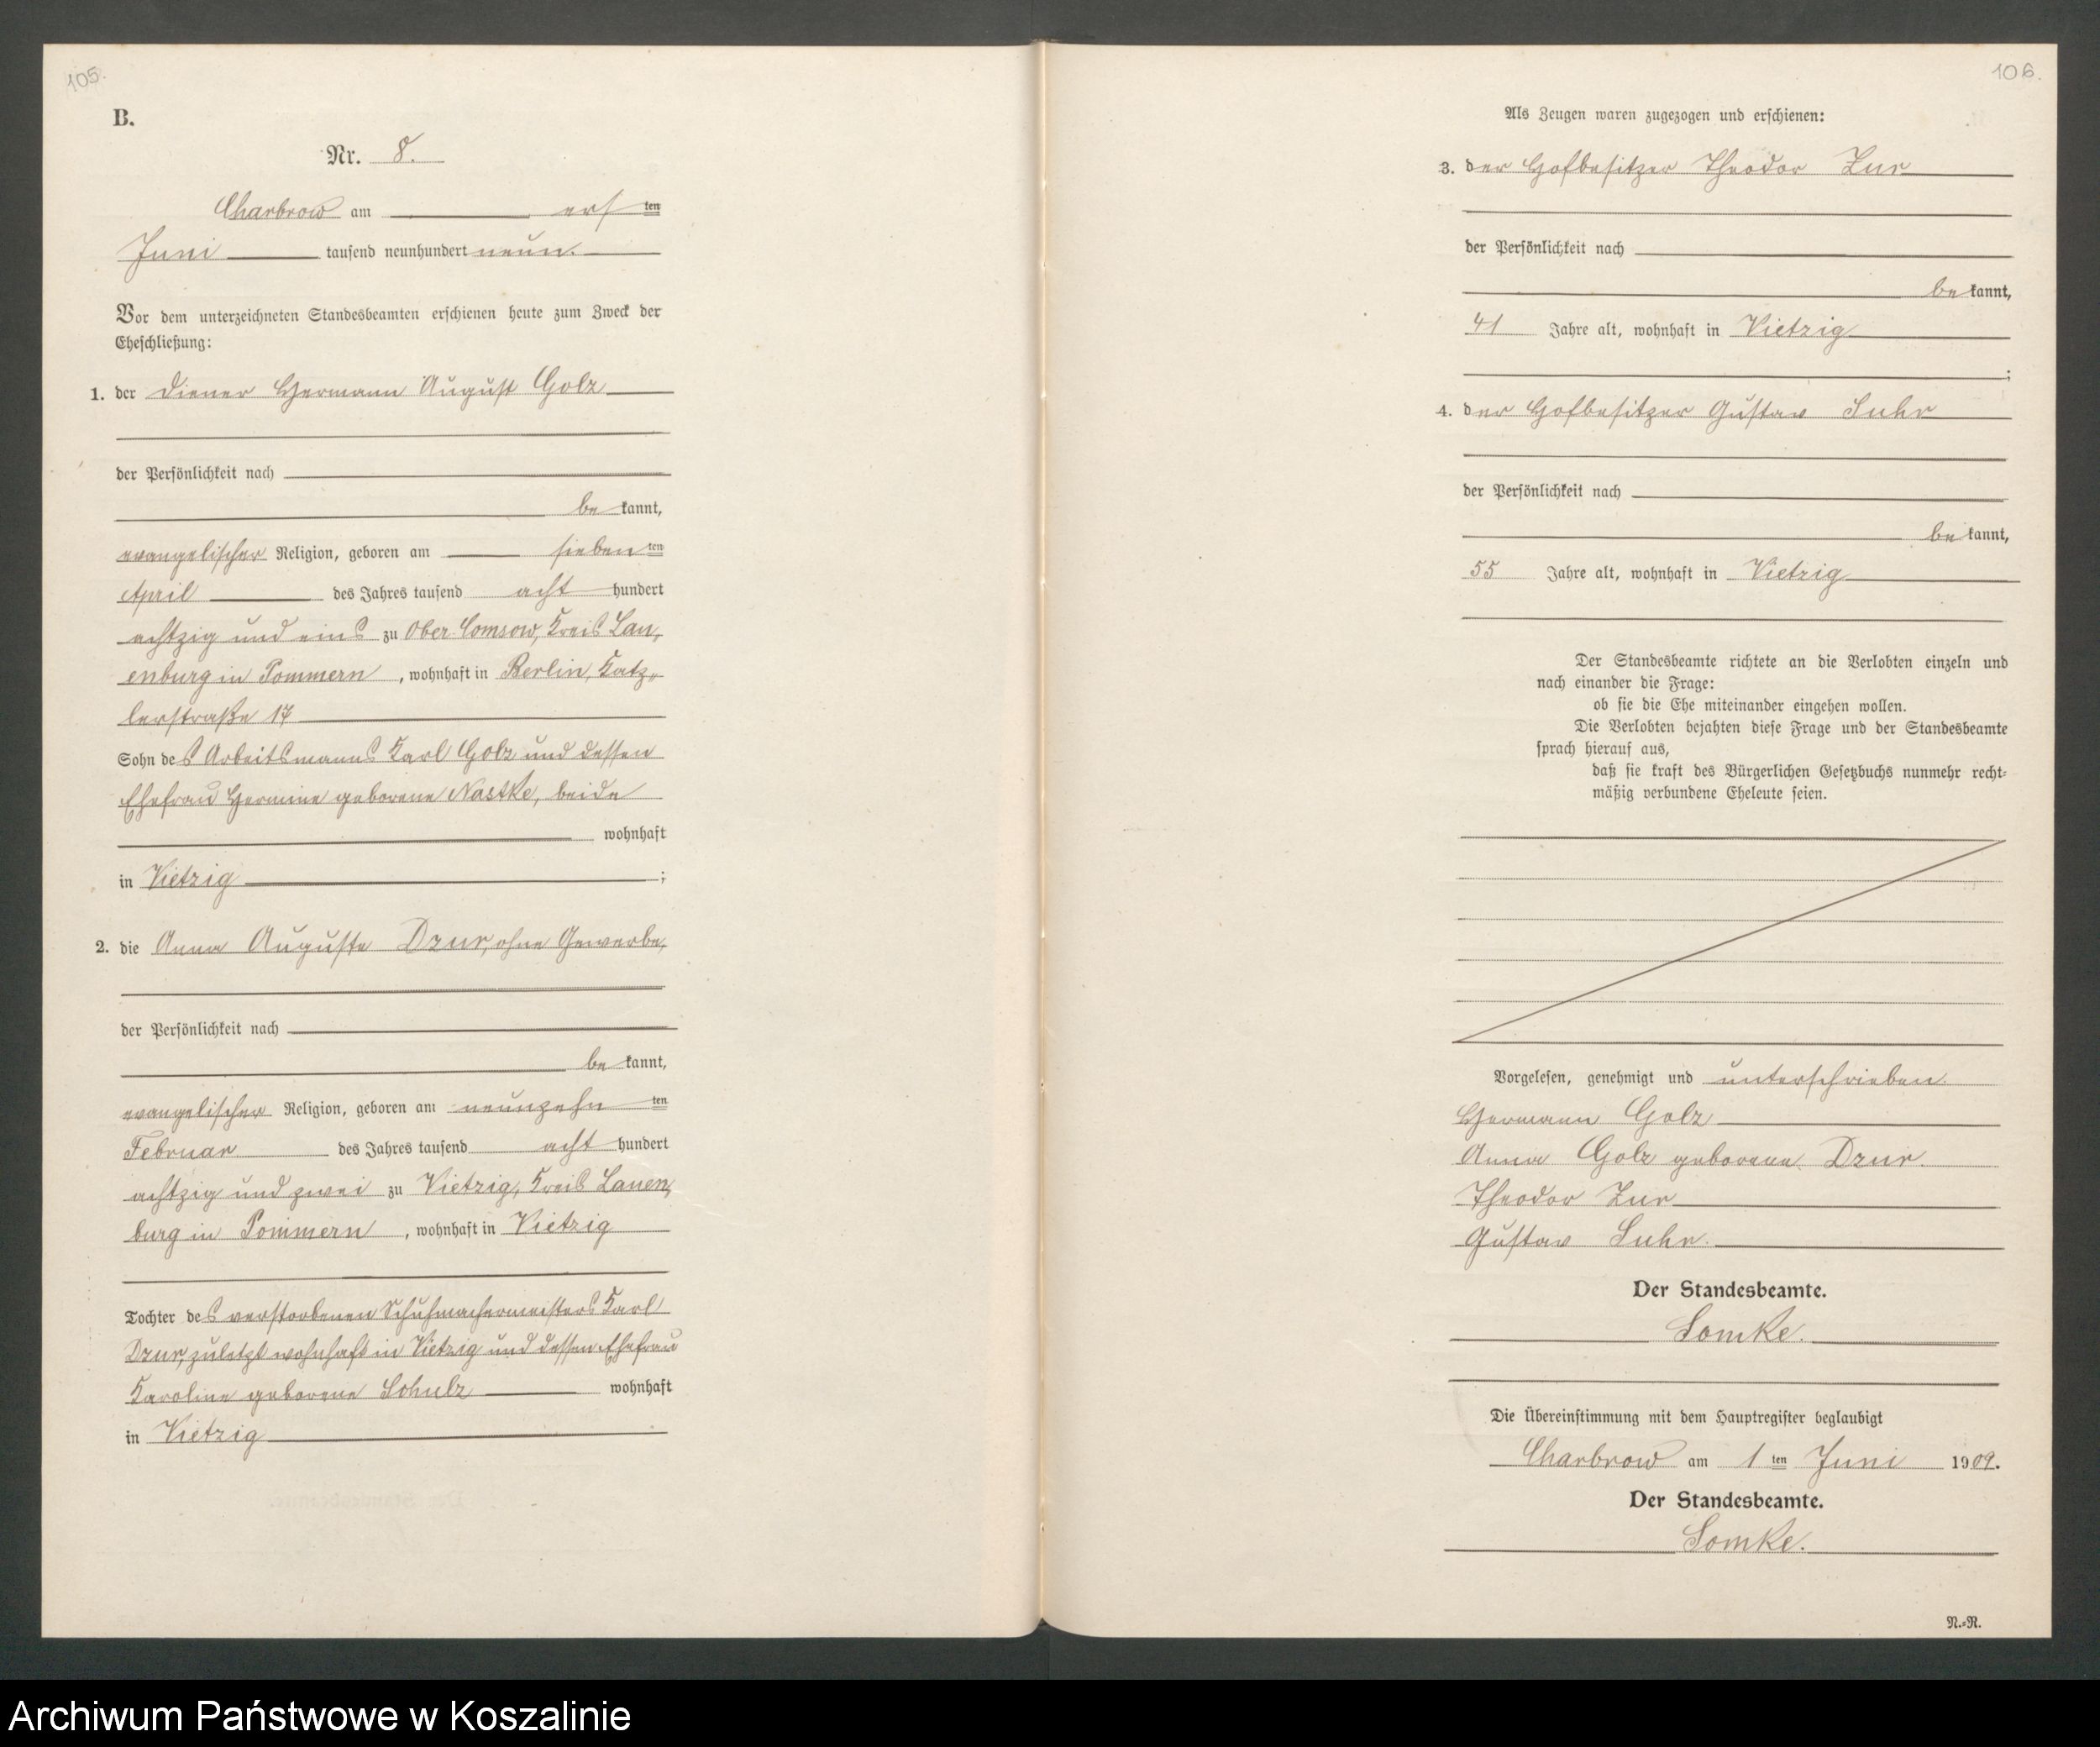 105.
B.
Nr. 8.
Charbrow am ersten
Juni tausend neunhundert neun.
Vor dem unterzeichneten Standesbeamten erschienen heute zum Zweck der
Eheschließung:
1. der Diener Hermann August Golz
der Persönlichkeit nach
bekannt,
evangelischer Religion, geboren am siebenten
April des Jahres tausend achthundert
achtzig und eins zu Ober Comsow, Kreis Lau,
enburg in Pommern, wohnhaft in Berlin, Katz„
lerstraße 17
Sohn des Arbeitsmanns Karl Golz und dessen
Ehefrau Hermine geborene Nastke, beide
wohnhaft
in Vietzig;
2. die Anna Auguste Dzur, ohne Gewerbe,
der Persönlichkeit nach
bekannt,
evangelischer Religion, geboren am neunzehnten
Februar des Jahres tausend achthundert
achtzig und zwei zu Vietzig, Kreis Lauen,
burg in Pommern, wohnhaft in Vietzig
Tochter des verstorbenen Schuhmachermeisters Karl
Dzur, zuletzt wohnhaft in Vietzig und dessen Ehefrau
Karoline geborene Schulz wohnhaft
in Vietzig
106.
Als Zeugen waren zugezogen und erschienen:
3. der Hofbesitzer Theodor Zur
der Persönlichkeit nach
bekannt,
41 Jahre alt, wohnhaft in Vietzig
;
4. der Hofbesitzer Gustav Suhr
der Persönlichkeit nach
bekannt,
55 Jahre alt, wohnhaft in Vietzig
Der Standesbeamte richtete an die Verlobten einzeln und
nach einander die Frage:
ob sie die Ehe miteinander eingehen wollen.
Die Verlobten bejahten diese Frage und der Standesbeamte
sprach hierauf aus,
daß sie kraft des Bürgerlichen Gesetzbuchs nunmehr recht-
mäßig verbundene Eheleute seien.
Vorgelesen, genehmigt und unterschrieben.
Hermann Golz
Anna Golz geborene Dzur.
Theodor Zur
Gustav Suhr.
Der Standesbeamte.
Lomke.
Die Übereinstimmung mit dem Hauptregister beglaubigt
Charbrow am 1ten Juni 1909.
Der Standesbeamte.
Lomke.
N.-R.
Archiwum Państwowe w Koszalinie